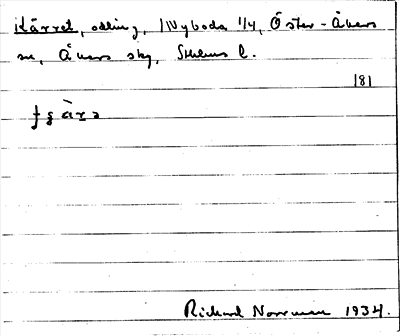 Kärret, odling, i Nyboda 1/4, Öster-Åkers
sn, Åkers skg, Sthlms l.
181
Richard Norrman 1934.